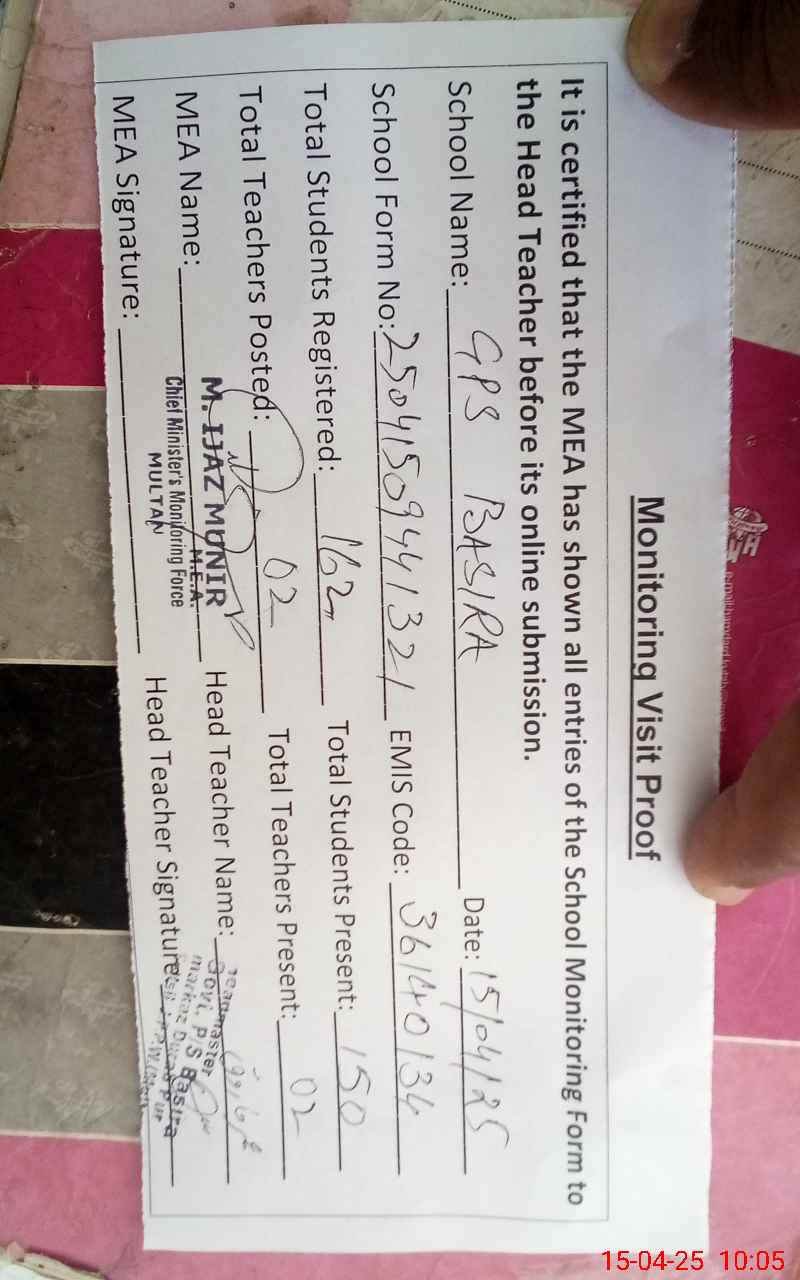 Monitoring Visit Proof
It is certified that the MEA has shown all entries of the School Monitoring Form to
the Head Teacher before its online submission.
School Name: GPS BASIRA Date: 15/04/25
School Form No: 25041509441321 EMIS Code: 36140134
Total Students Registered: 162 Total Students Present: 150
Total Teachers Posted: 02 Total Teachers Present: 02
MEA Name: M. IJAZ MUNIR Head Teacher Name:
M.E.A.
Chief Minister's Monitoring Force
MULTAN
MEA Signature: Head Teacher Signature:
Headmaster
Govt. P/S Basira
Markaz
15-04-25 10:05